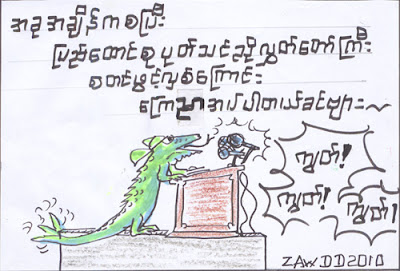 အခုအချိန်ကစပြီး
ပြည်ထောင်စုပုတ်သင်ညိုလွှတ်တော်ကြီး
စတင်ဖွင့်လှစ်ကြောင်း
ကြေညာအပ်ပါတယ်ခင်ဗျား
ကျွတ်!
ကျွတ်!
ကျွတ်!
ZAW DD 2010